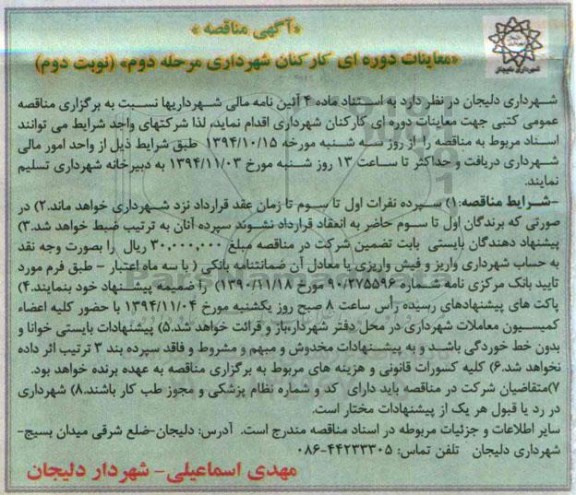 «آگهی مناقصه»
«معاینات دوره ای کارکنان شهرداری مرحله دوم» (نوبت دوم)
شهرداری دلیجان
شهرداری دلیجان در نظر دارد به استناد ماده ۴ آئین نامه مالی شهرداریها نسبت به برگزاری مناقصه
عمومی کتبی جهت معاینات دوره ای کارکنان شهرداری اقدام نماید، لذا شرکتهای واجد شرایط می توانند
اسناد مربوط به مناقصه را از روز سه شنبه مورخه ۱۳۹۴/۱۰/۱۵ طبق شرایط ذیل از واحد امور مالی
شهرداری دریافت و حداکثر تا ساعت ۱۳ روز شنبه مورخ ۱۳۹۴/۱۱/۰۳ به دبیرخانه شهرداری تسلیم
نمایند.
-شرایط مناقصه:۱) سپرده نفرات اول تا سوم تا زمان عقد قرارداد نزد شهرداری خواهد ماند.۲) در
صورتی که برندگان اول تا سوم حاضر به انعقاد قرارداد نشوند سپرده آنان به ترتیب ضبط خواهد شد.۳)
پیشنهاد دهندگان بایستی بابت تضمین شرکت در مناقصه مبلغ ۳۰,۰۰۰,۰۰۰ ریال را بصورت وجه نقد
به حساب شهرداری واریز و فیش واریزی یا معادل آن ضمانتنامه بانکی ( با سه ماه اعتبار - طبق فرم مورد
تایید بانک مرکزی نامه شماره ۹۰/۲۷۵۵۹۶ مورخ ۱۳۹۰/۱۱/۱۸) را ضمیمه پیشنهاد خود بنمایند.۴)
پاکت های پیشنهادهای رسیده رأس ساعت ۸ صبح روز یکشنبه مورخ ۱۳۹۴/۱۱/۰۴ با حضور کلیه اعضاء
کمیسیون معاملات شهرداری در محل دفتر شهردار،باز و قرائت خواهد شد.۵) پیشنهادات بایستی خوانا و
بدون خط خوردگی باشد و به پیشنهادات مخدوش و مبهم و مشروط و فاقد سپرده بند ۳ ترتیب اثر داده
نخواهد شد.۶) کلیه کسورات قانونی و هزینه های مربوط به برگزاری مناقصه به عهده برنده خواهد بود.
۷)متقاضیان شرکت در مناقصه باید دارای کد و شماره نظام پزشکی و مجوز طب کار باشند.۸) شهرداری
در رد یا قبول هر یک از پیشنهادات مختار است.
سایر اطلاعات و جزئیات مربوطه در اسناد مناقصه مندرج است. آدرس: دلیجان-ضلع شرقی میدان بسیج-
شهرداری دلیجان تلفن تماس: ۴۴۲۳۳۳۰۵-۰۸۶
مهدی اسماعیلی- شهردار دلیجان